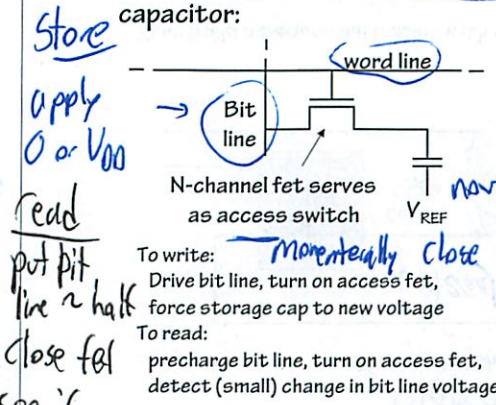 capacitor:
Store
word line
apply
0 or VDD
→
Bit
line
N-channel fet serves
as access switch
VREF
read
momenterically close
put bit
line ~ half
close fet
To write:
Drive bit line, turn on access fet,
force storage cap to new voltage
To read:
precharge bit line, turn on access fet,
detect (small) change in bit line voltage